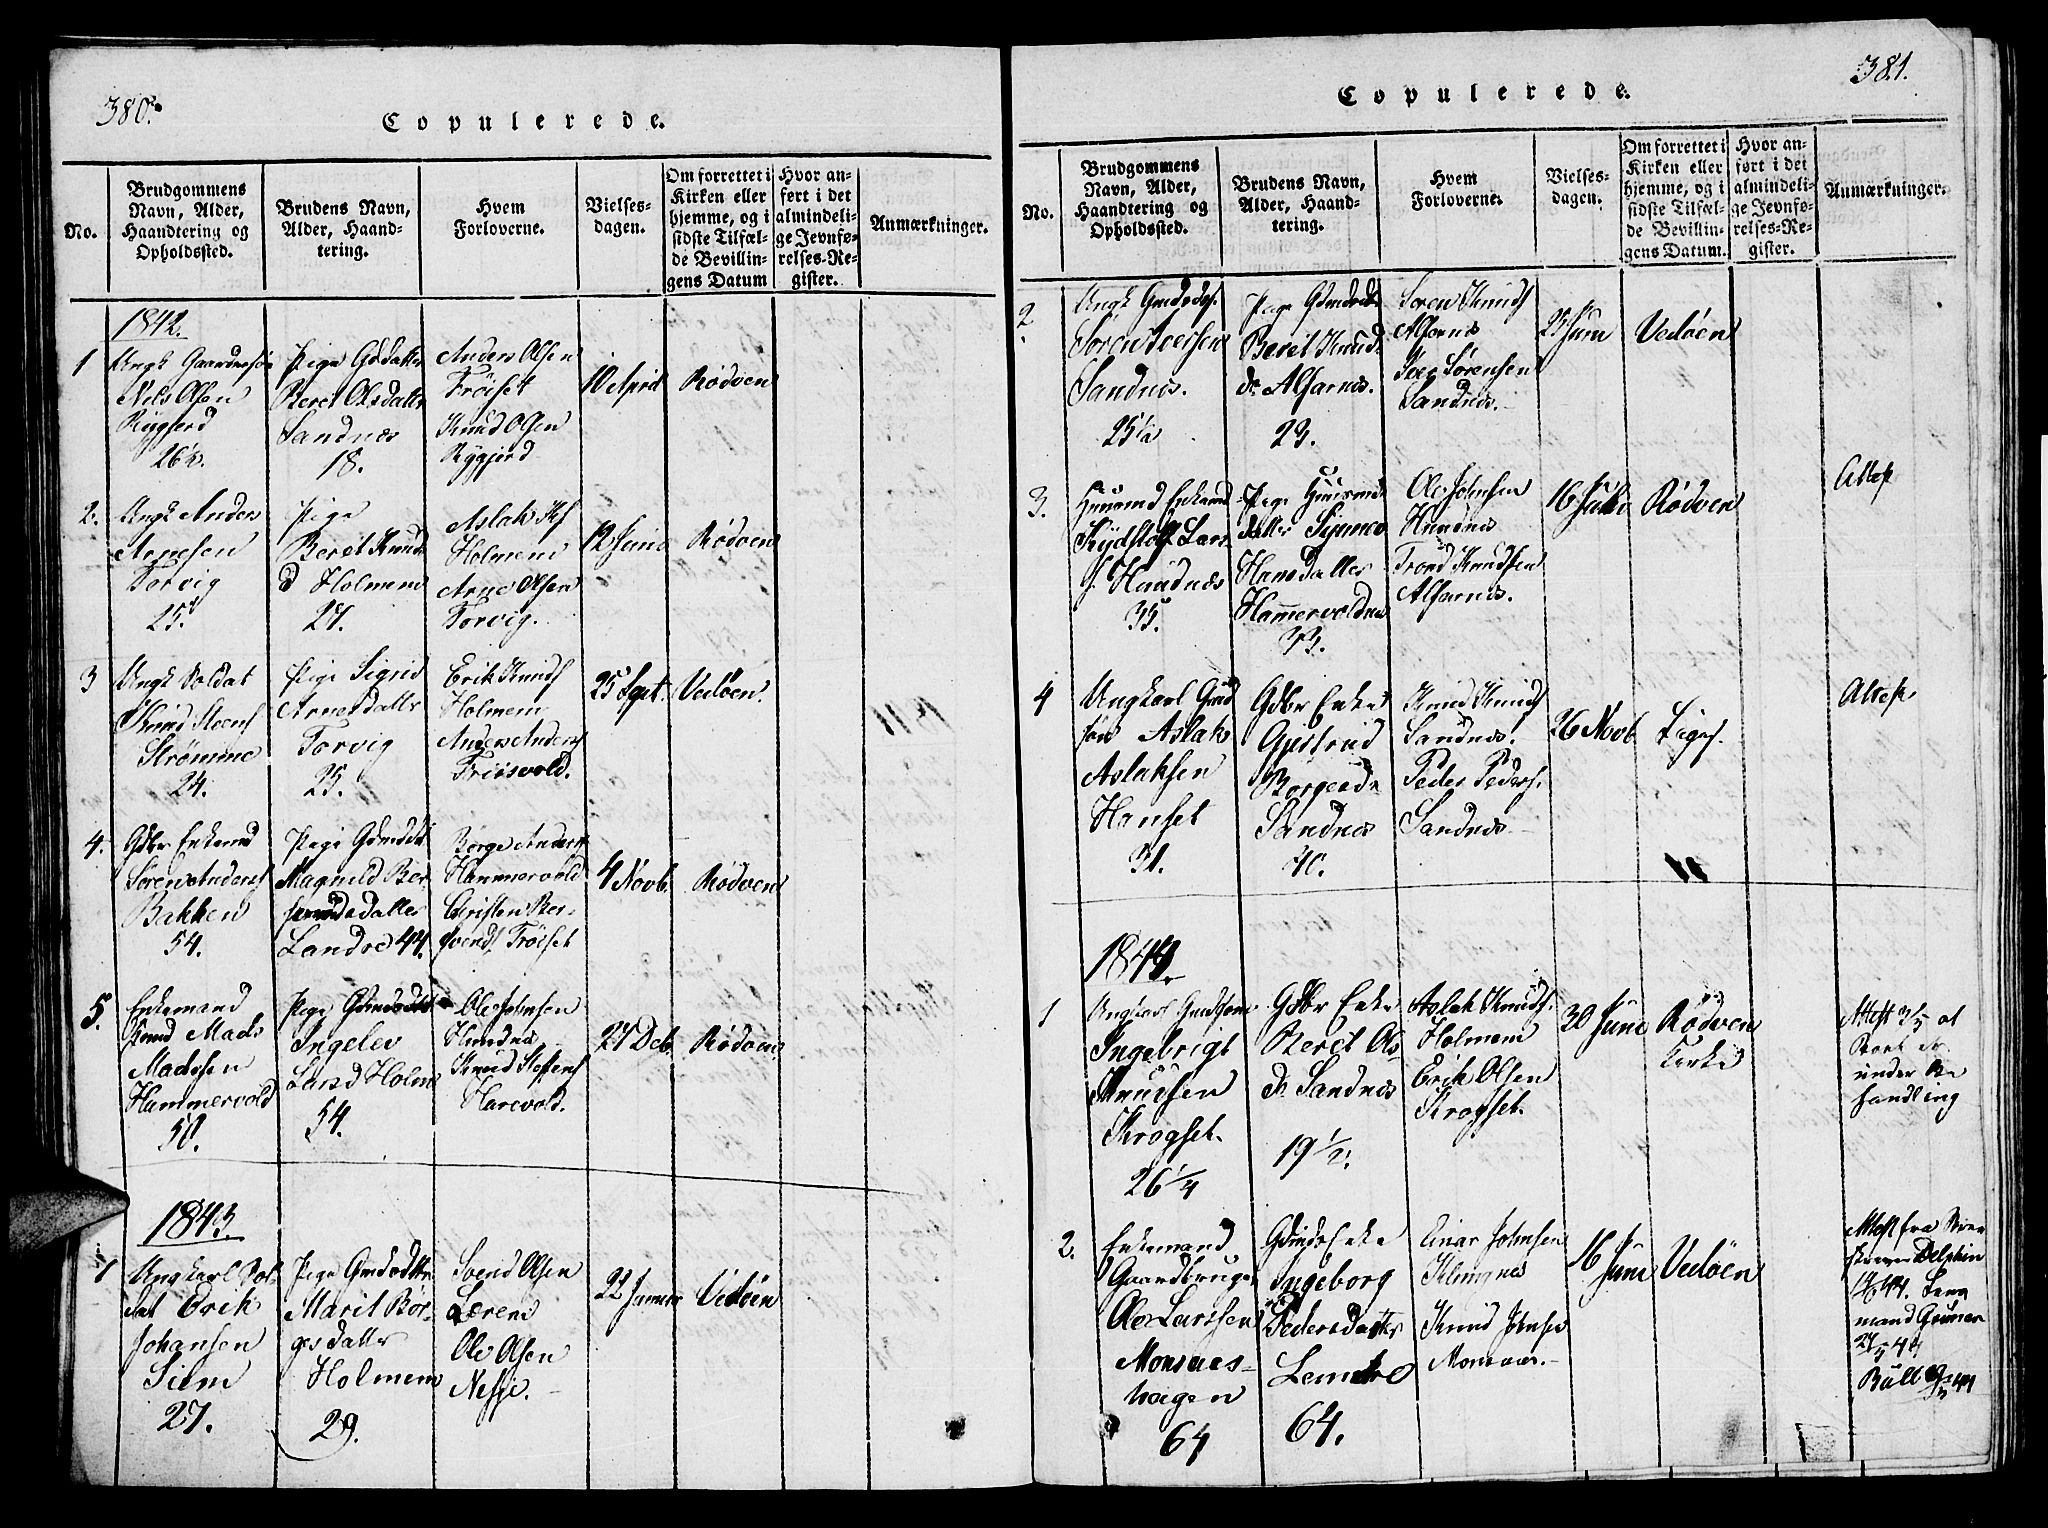 380.
Copulerede.
No.
Brudgommens
Navn, Alder,
Haandtering og
Opholdssted.
Brudens Navn,
Alder, Haand-
tering.
Hvem
Forloverne.
Vielses-
dagen.
Om forrettet i
Kirken eller
hjemme, og i
sidste Tilfæl-
de Bevillin-
gens Datum
Hvor an-
ført i det
almindeli-
ge Jevnfø-
relses-Re-
gister.
Anmærkninger.
1842.
1
Ungk Gaardmesøn
Nels Olsen
Rygjerd
26½.
Pige Gddatter
Beret Olsdatter
Sandnæs
18.
Anders Olsen
Fröiset
Knud Olsen
Rygjerd
10 April
Rødven
2.
Ungk Anders
Arnesen
Torvig
25.
Pige
Beret Knuds
d Holmem
27.
Aslak Kf
Holmem
Arne Olsen
Torvig.
12 Juni
Rødven
3
Ungk Soldat
Knud Steens
Strømme
24.
Pige Sigrid
Arnesdatter
Torvig
25.
Erik Knuds
Holmem
Anders Anders
Friisvold.
25 Sept.
Vedøen.
4.
Gdbr Enkemd
Søren Anders
Bakken
54.
Pige Gdmdtr
Magnild Ber
sendsdatter
Landre 44.
Børge Anders
Hammervold
Christen Ber-
svends Tröiset
4 Novb.
Rødven
5.
Enkemand
Knud Mads
Madssen
Hammervold
50.
Pige Gdmdsdtr
Ingelev
Larsd Holm
54.
Ole Johnsen
Hundnes
Knud Steffens
Harevold.
27 Deb.
Rødven
1843.
1
Ungkarl Sol-
dat Erik
Johansen
Siem
27.
Pige Gmdsdtter
Marit Bör-
gesdatter
Holmem
29.
Svend Olsen
Lerem
Ole Olsen
Nesje.
22 Januar
Vedøen
381.
Copulerede.
No.
Brudgommens
Navn, Alder,
Haandtering og
Opholdssted.
Brudens Navn,
Alder, Haand-
tering.
Hvem
Forloverne.
Vielses-
dagen.
Om forrettet i
Kirken eller
hjemme, og i
sidste Tilfæl-
de Bevillin-
gens Datum.
Hvor an-
ført i det
almindeli-
ge Jevnfø-
relses-Re-
gister.
Anmærkninger.
2.
Ungk
Søren Iversen
Sandnes.
25½
Pige
Beret Knud
dr Alfarnes.
23.
Soren Knuds
Alfarnes
Iver Sørensen
Sandnes.
25 Juni
Vedøen
3.
Huusmd Enkemd
Kydstolf Lars
s. Haudnæs
35.
Pige Huusmds
datter Synnev
Hansdatter
Hammervoldnes
33.
Ole Johnsen
Hundnes
Trond Knudsen
Alfarnes.
16 Juli
Rødven
Attest
4
Ungkarl Gmd
søn Aslak
Aslaksen
Hanset
31.
Gdbr Enke
Gjertrud
Borgesdr
Sandnes
40.
Knud Knuds
Sandnes.
Peder Peders.
Sandnes
26 Novb
Attest
1844.
1
Ungkarl Gmdsøn
Ingebrigt
Knudsen
Krogset.
26 1/4
Gdbr Enke
Beret Ols
d. Sandnes
19 1/2.
Aslak Knuds.
Holmem
Erik Olsen
Krogset.
30 Juni
Rødven
Kirke
Attest 3/5 at
Boet er
under Be
handling
2.
Enkemand
Gaardbruger
Ole Larssen
Monsaas-
hagen
64
Gdmds Enke
Ingeborg
Pedersdatter
Lemdre
64.
Einar Johnsen
Klungnes
Knud Johnsen
Monsaas.
16 Juni
Vedøen
Attest fra
Delphin